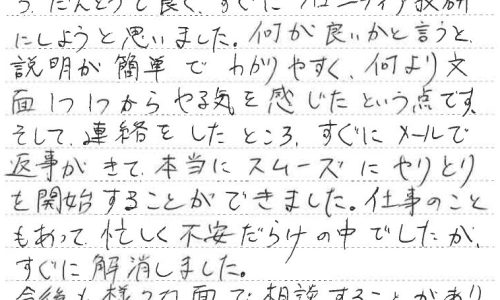 う、だんとつで良く、すぐに フロンティア技研
にしようと思いました。何が良いかと言うと、
説明が簡単で わかりやすく、何より文
面1つ1つからやる気を感じたという点です。
そして、連絡をしたところ、すぐにメールで
返事がきて、本当にスムーズにやりとり
を開始することができました。仕事のこと
もあって、忙しく不安だらけの中でしたが、
すぐに解消しました。
今後も様々な面で相談することがあり